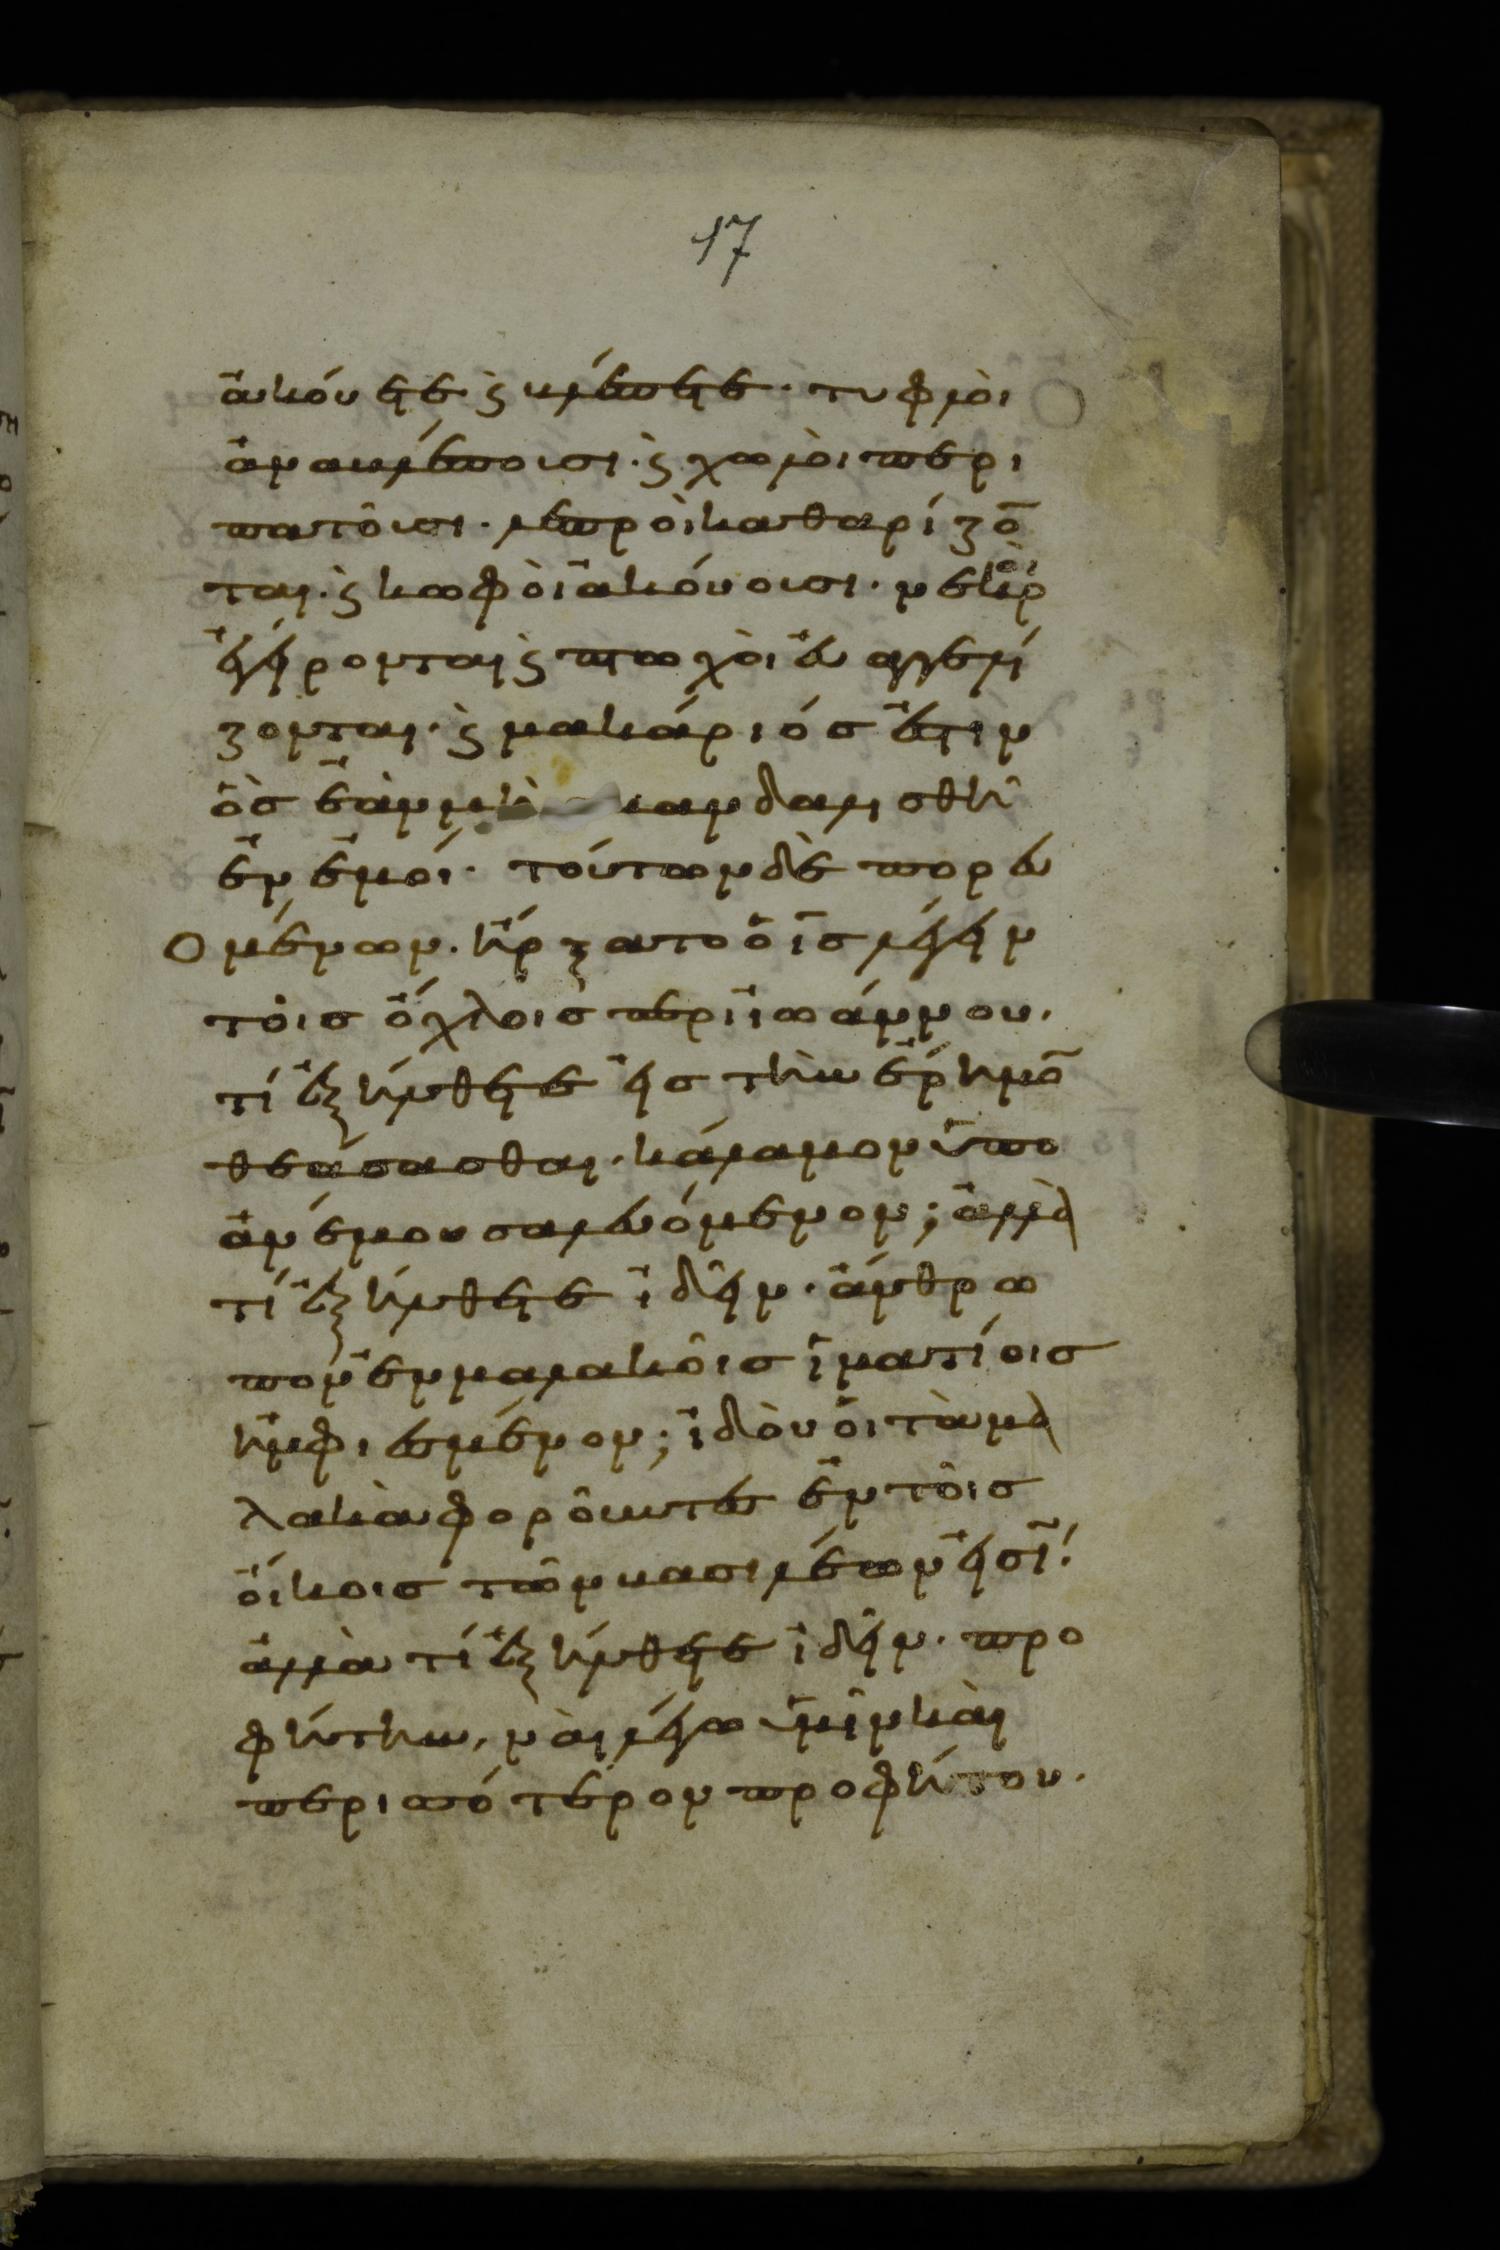 17
ἀκούετε ϗ βλέπετε· τυφλοὶ
ἀναβλέπουσι· ϗ χωλοὶ περι
πατοῦσι· λεπροὶ καθαρίζο̅
ται· ϗ κωφοὶ ἀκούουσι· νεκροὶ
ἐγείρονται ϗ πτωχοὶ εὐαγγελί
ζονται· ϗ μακάριός ἐστιν
ὃς ἐὰν μὴ καν δαλισθῆ
ἐν ἐμοί· τούτων δὲ πορευ
Ομένων. ἤρξατο ὁ ι̅ς λέγειν
τοῖς ὄχλοις περὶ ἰωάννου.
τί ἐξήλθετε εἰς τὴν ἔρημο̅
θεάσασθαι· κάλαμον ὑπο
ἀνέμου σαλευόμενον; ἀλλὰ
τί ἐξήλθετε ἰδεῖν· ἄνθρω
πον ἐν μαλακοῖς ἱματίοις
ἠμφιεσμένον; ἰδοὺ οἱ τὰ μα
λακὰ φοροῦντες ἐν τοῖς
οἴκοις τῶν βασιλέων εἰσῒ:
ἀλλὰ τί ἐξήλθετε ἰδεῖν· προ
φήτην, ναὶ λέγω ὑμῖν καὶ
περισσότερον προφήτου.